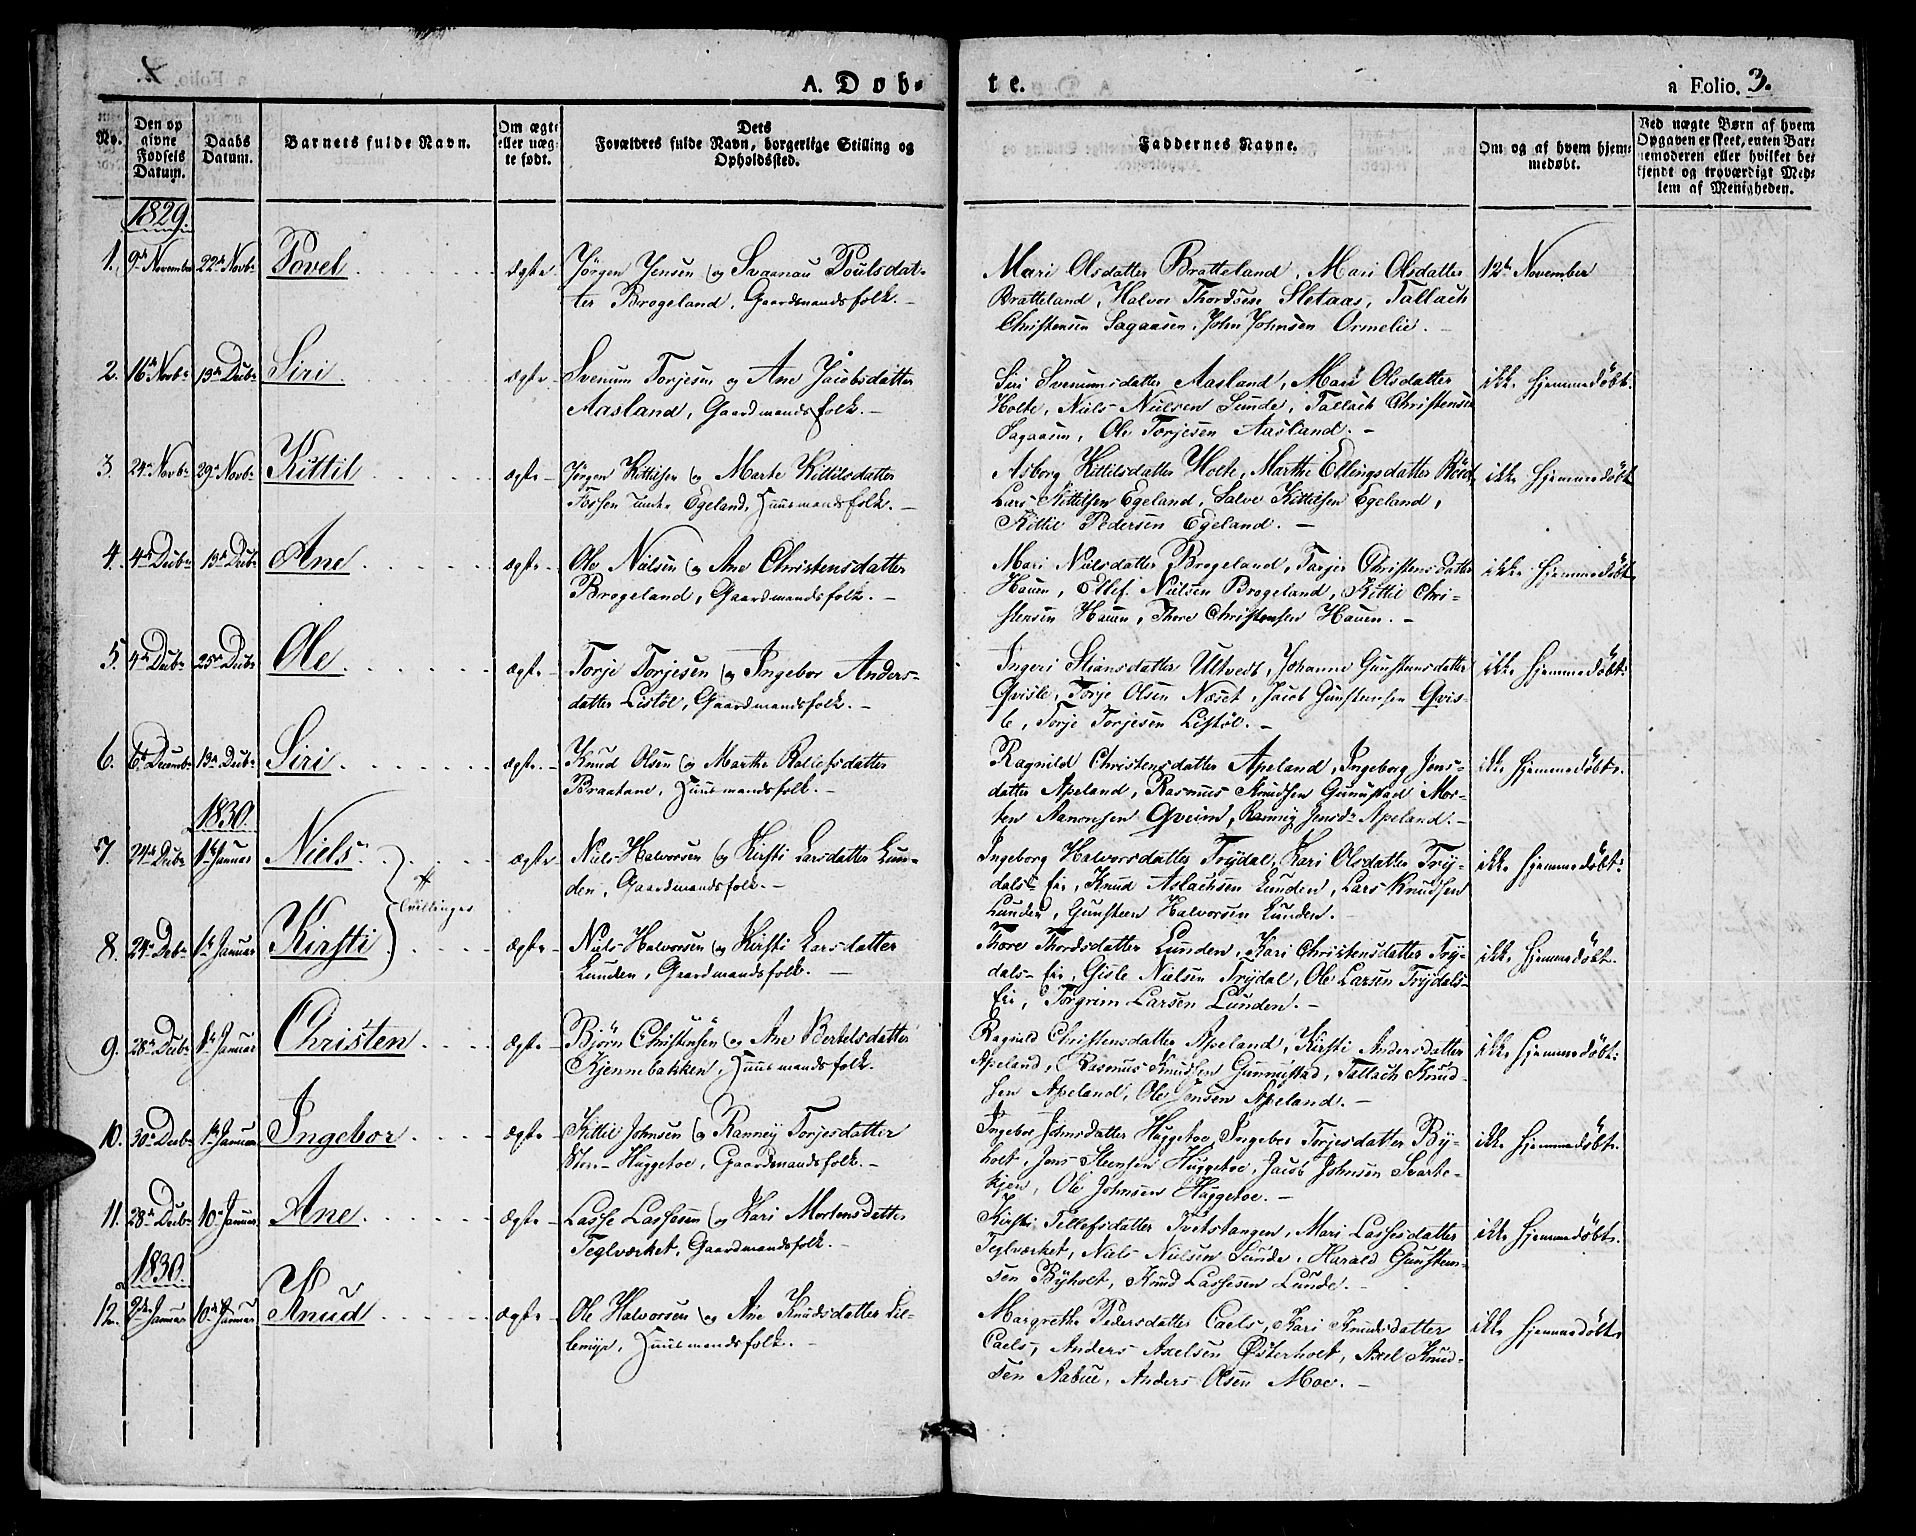 A. Døb-
te.
a Folio. 3.
No.
Den op
givne
Fødsels
Datum.
Daabs
Datum.
Barnets fulde Navn.
Om ægte
eller uæg
te født.
Dets
Forældres fulde Navn, borgerlige Stilling og
Opholdssted.
Faddernes Navne.
Om og af hvem hjem
medøbt.
Ved uægte Børn af hvem
Opgaven er skeet, enten Bar
nemoderen eller hvilket be
kjendt og troværdigt Med
lem af Menigheden.
1829.
1. 9de November 22de Novbr Povel ægte Jørgen Jensen og Svaanau Poulsdat-
ter Brogeland, Gaardmandsfolk.
Mari Olsdatter Bratteland, Mari Olsdatter
Bratteland, Halvor Thordsen Sletaas, Tallach
Christensen Sagaasen, John Johnsen Ormelie.
12te November
2. 16de Novbr 13de Decbr Siri ægte Svenum Torjesen og Ane Jacobsdatter
Aasland, Gaardmandsfolk.
Siri Svenumsdatter Aasland, Mari Olsdatter
Holte, Niels Nielsen Sunde, Tallach Christensen
Sagaasen, Ole Torjesen Aasland.
ikke hjemmedøbt.
3. 24de Novbr 29de Novbr Kittil ægte Jørgen Kittilsen og Marte Kittilsdatter
Fossen under Egeland, Huusmandsfolk.
Asborg Kittilsdatter Holte, Marthe Ellingsdatter
Lars Kittelsen Egeland, Salve Kittilsen Egeland,
Kittil Pedersen Egeland.
ikke hjemmedøbt
4. 4de Decbr 13de Decbr Ane ægte Ole Nielsen og Ane Christensdatter
Brogeland, Gaardmandsfolk.
Mari Nielsdatter Brogeland, Torjer Christensdatter
Hauen, Ellef Nielsen Brogeland, Kittil Chri-
stensen Hauen, Thore Christensen Hauen.
ikke hjemmedøbt
5. 4de Decbr 25de Decbr Ole ægte Torje Torjesen og Ingebor Anders-
datter Listøl, Gaardmandsfolk.
Ingeri Stiansdatter Ultvedt, Johanne Gunstensdatter
Qvisle, Torje Olsen Næset, Jacob Gunstensen Qvis-
le, Torje Torjesen Listøl.
ikke hjemmedøbt
6. 6te Decembr 13de Decbr Siri ægte Knud Olsen og Marthe Roliefsdatter
Braatane, Huusmandsfolk.
Ragnild Christensdatter Apeland, Ingeborg Jens-
datter Apeland, Rasmus Knudsen Gunnestad, Mor-
ten Aanonsen Qveim, Ranneÿ Jensdr Apeland.
ikke hjemmedøbt.
1830.
7. 24de Decbr 1ste Januar Niels ægte Niels Halvorsen og Kirsti Larsdatter Lun-
den, Gaardmandsfolk.
Ingeborg Halvorsdatter Trÿdal, Kari Olsdatter Trÿ-
dals Eie, Knud Aslachsen Lunden, Lars Knudsen
Lunden, Gunsteen Halvorsen Lunden.
ikke hjemmedøbt.
Tvillinger
8. 24de Decbr 1ste Januar Kirsti ægte Niels Halvorsen og Kirsti Larsdatter
Lunden, Gaardmandsfolk.
Thore Thordsdatter Lunden, Kari Christensdatter Trÿ-
dals-Eie, Gisle Nielsen Trÿdal, Ole Larsen Trÿdals-
Eie, Torgrim Larsen Lunden.
ikke hjemmedøbt.
9. 28de Decbr 1ste Januar Christen ægte Bjørn Christensen og Ane Bertelsdatter
Kjennebakken, Huusmandsfolk.
Ragnild Christensdatter Apeland, Kirsti Andersdatter
Apeland, Rasmus Knudsen Gunnestad, Tallach Knud-
sen Apeland, Ole Jensen Apeland.
ikke hjemmedøbt.
10. 30te Decbr 1ste Januar Ingebor ægte Kittil Johnsen og Ranneÿ Torjesdatter
Sten-Huggetoe, Gaardmandsfolk.
Ingebor Johnsdatter Huggetoe, Ingebor Torjesdatter Bÿ-
holt, Jens Stensen Huggetoe, Jacob Johnsen Svarte-
kjen, Ole Johnsen Huggetoe.
ikke hjemmedøbt.
11. 28de Decbr 10de Januar Ane ægte Lasse Lassesen og Kari Mortensdatter
Teglværket, Gaardmandsfolk.
Kirsti Tellefsdatter Tvetstangen, Mari Lassesdatter
Teglværket, Niels Nielsen Sunde, Harald Gunsteen-
sen Bÿholt, Knud Lassesen Lunde.
ikke hjemmedøbt.
1830.
12. 2den Januar 10de Januar Knud ægte Ole Halvorsen og Ane Knudsdatter Lil-
lemÿr, Huusmandsfolk.
Margrethe Pedersdatter Caels, Kari Knudsdatter
Caels, Anders Axelsen Østerholt, Axel Knud-
sen Aabue, Anders Olsen Moe.
ikke hjemmedøbt